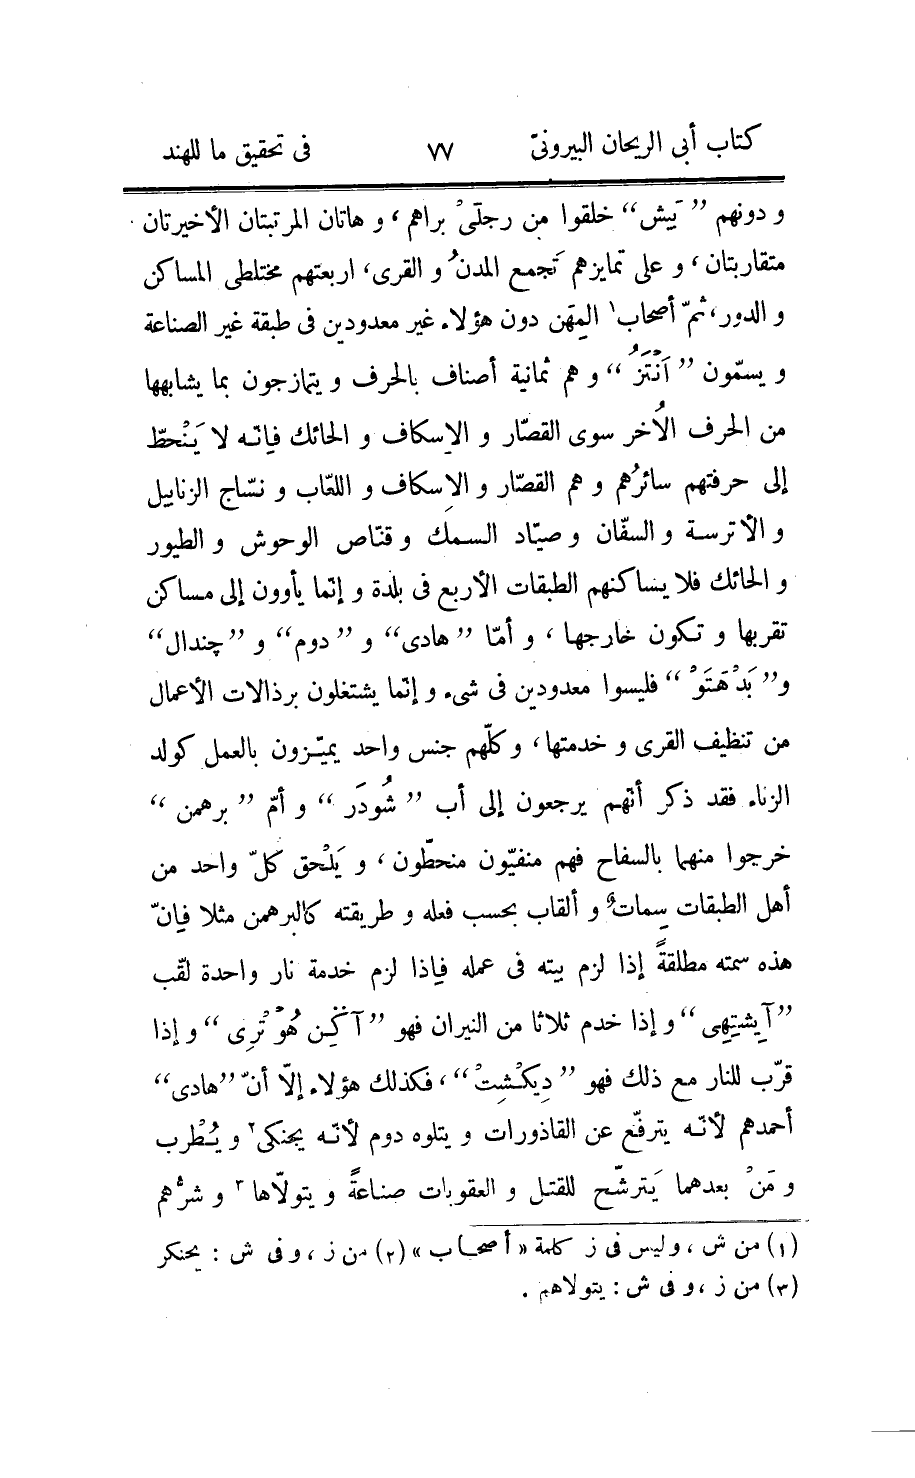 كتاب أبى الريحان البيرونىّ ٧٧ فى تحقيق ما للهند
و دونهم ”بَيش“ خلقوا من رجلَىْ براهم، و هاتان المرتبتان الأخيرتان
متقاربتان، و على تمايزهم تَجمع المدنُ و القرى، اربعتهم مختلطى المساكن
و الدور، ثمّ أصحاب١ المِهَن دون هؤلاء غير معدودين فى طبقة غير الصناعة
و يسمّون ”اَنْتَزُ“ و هم ثمانية أصناف بالحرف و يتمازجون بما يشابهها
من الحرف الأُخر سوى القصّار و الإسكاف و الحائك فإنّه لا يَنْحطّ
إلى حرفتهم سائرُهم و هم القصّار و الإسكاف و اللعّاب و نسّاج الزنابيل
و الأترسة و السفّان و صيّاد السمك و قنّاص الوحوش و الطيور
و الحائك فلا يساكنهم الطبقات الأربع فى بلدة و إنّما يأوون إلى مساكن
تقربها و تكون خارجها، و أمّا ”هادى“ و ”دوم“ و ”چندال“
و ”بَدْهَتَوْ“ فليسوا معدودين فى شىء و إنّما يشتغلون برذالات الأعمال
من تنظيف القرى و خدمتها، و كلّهم جنس واحد يميّزون بالعمل كولد
الزناء فقد ذكر أنّهم يرجعون إلى أب ”شُودَر“ و أمّ ”برهمن“
خرجوا منهما بالسفاح فهم منفيّون منحطّون، و يَلْحق كلّ واحد من
أهل الطبقات سِماتٌ و ألقاب بحسب فعله و طريقته كالبرهمن مثلا فإنّ
هذه سمته مطلقةً إذا لزم بيته فى عمله فإذا لزم خدمة نار واحدة لقّب
”آيِشتِهِى“ و إذا خدم ثلاثا من النيران فهو ”آكْنِ هُوْتْرِى“ و إذا
قرّب للنار مع ذلك فهو ”دِيكْشِتْ“، فكذلك هؤلاء إلّا أنّ ”هادى“
أحمدهم لأنّه يترفّع عن القاذورات و يتلوه دوم لأنّه يجنكى٢ و يُطْرب
و مَنْ بعدهما يَترشّح للقتل و العقوبات صناعةً و يتولّاها٣ و شرُّهم
(١) من ش، و ليس فى ز كلمة «أصحاب» (٢) من ز، و فى ش : يحنكر
(٣) من ز، و فى ش : يتولاهم .